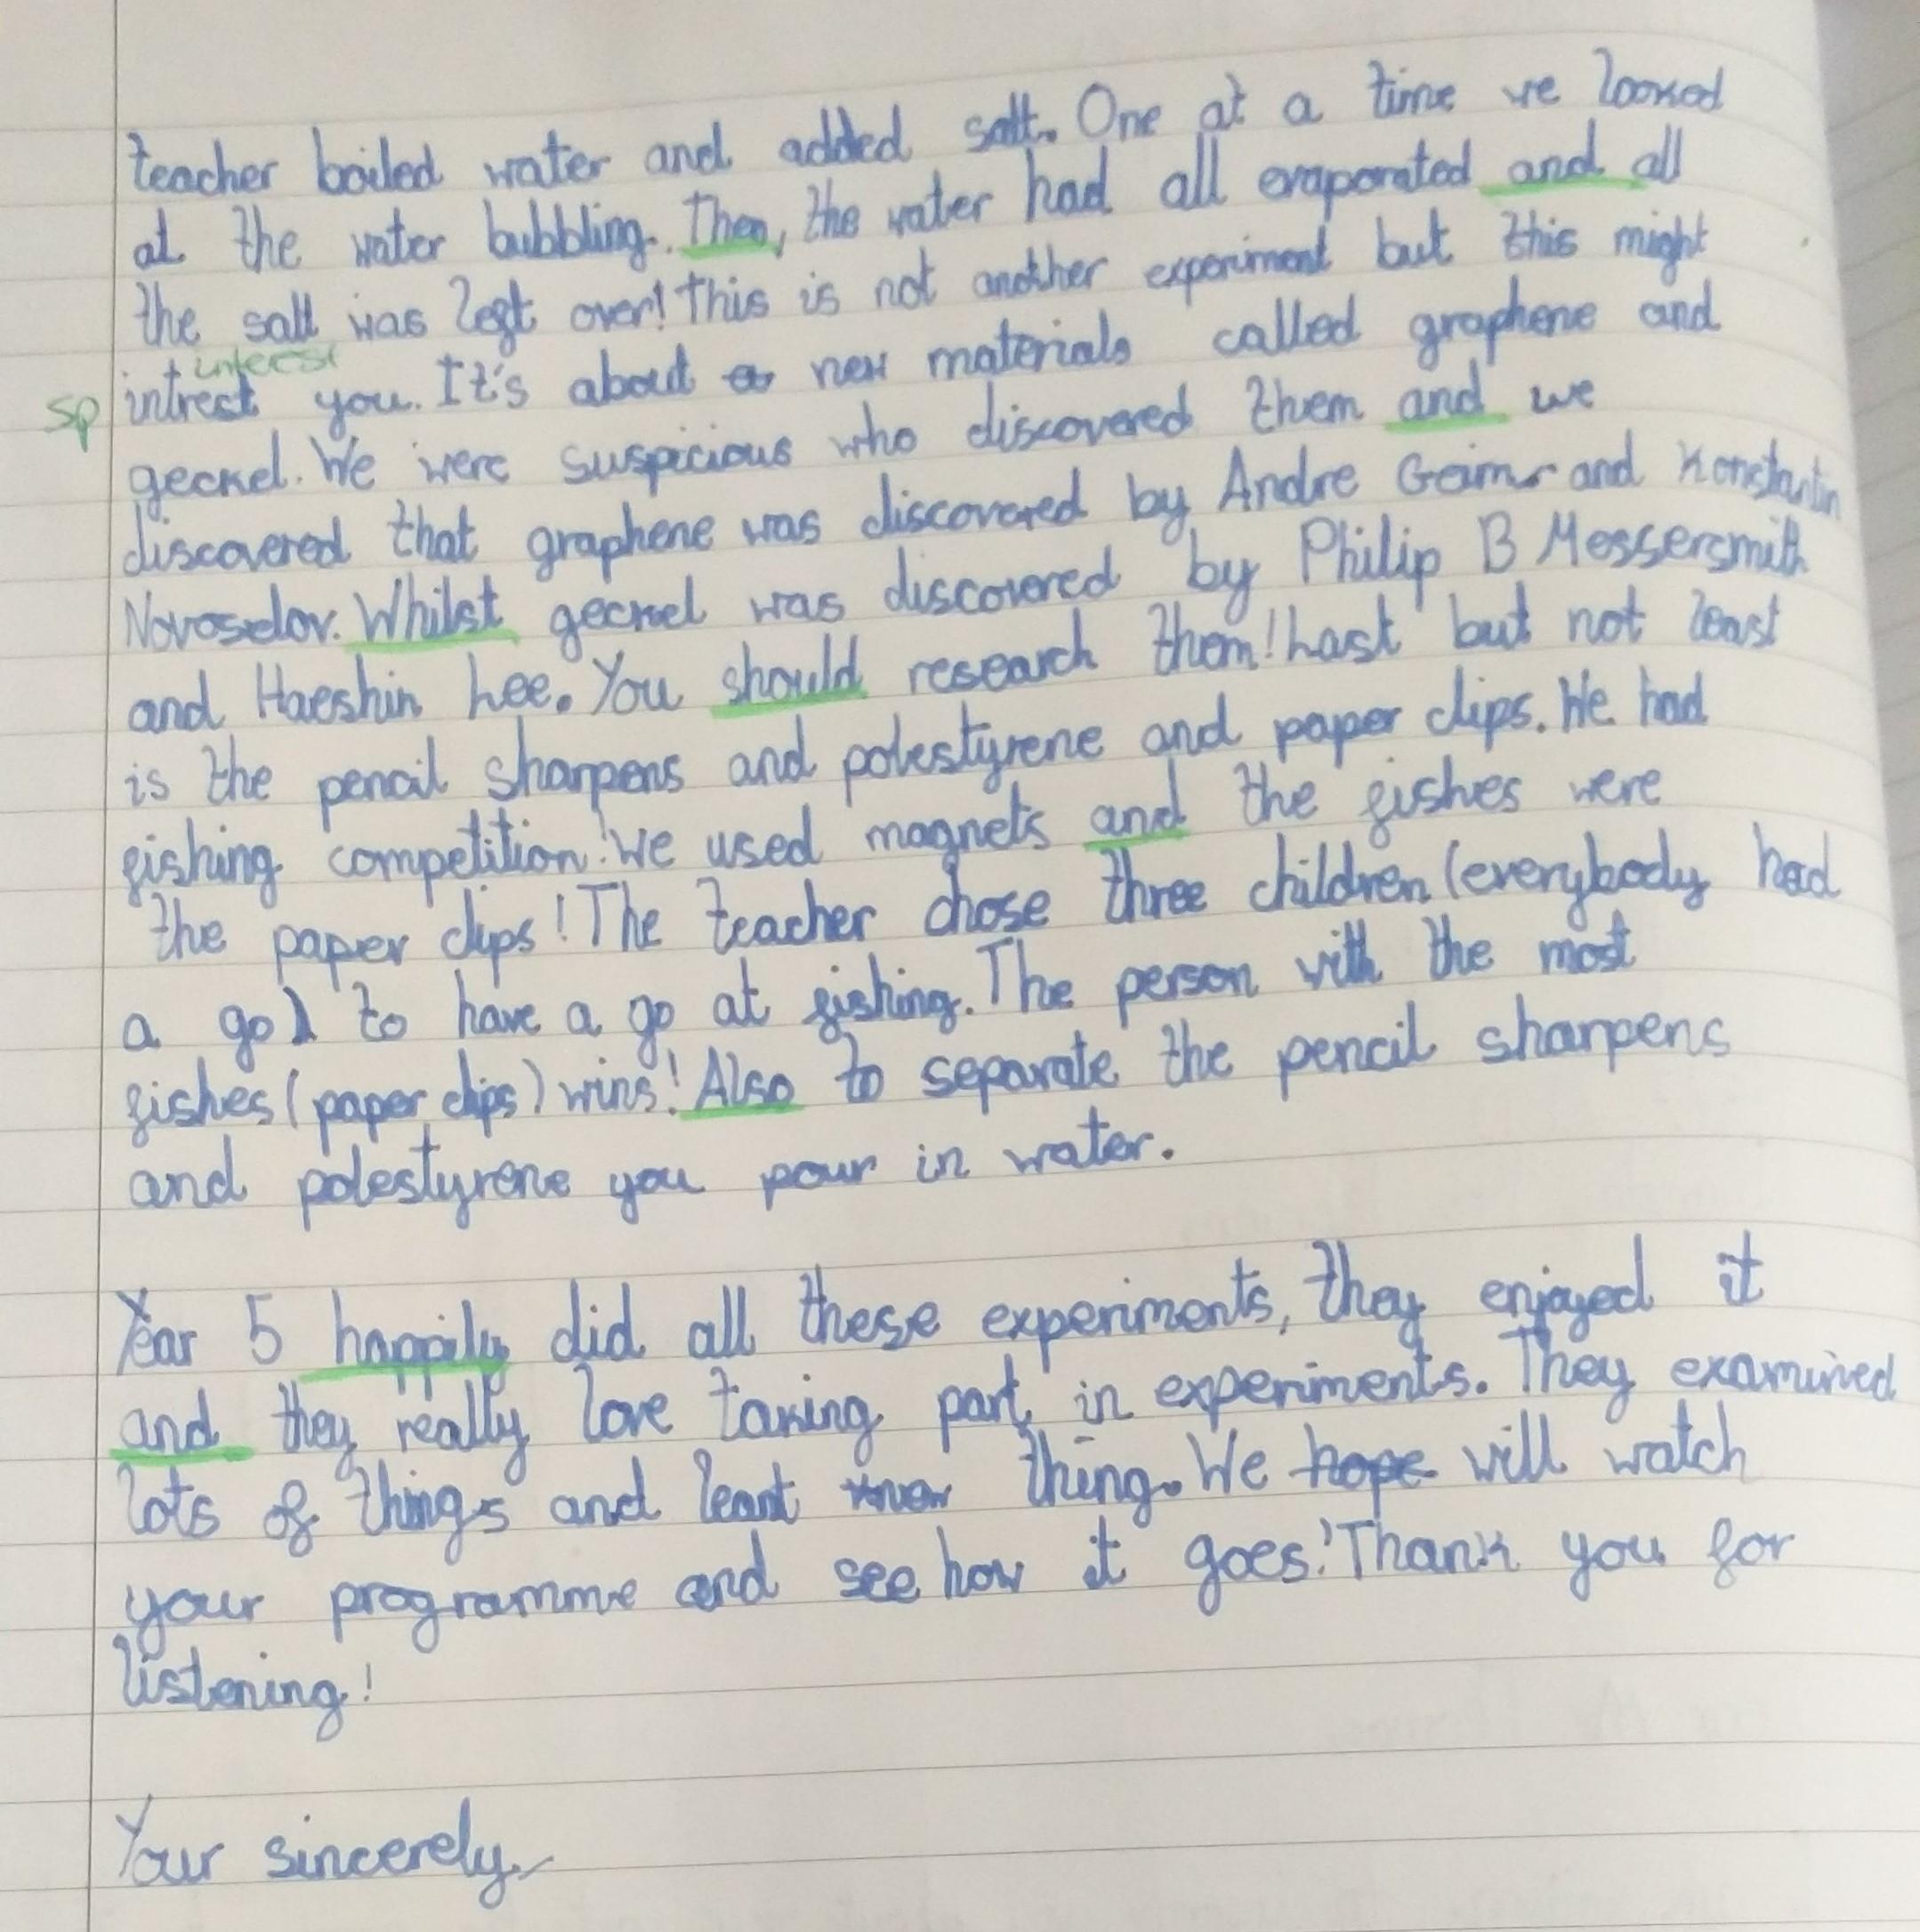 teacher boiled water and added salt. One at a time we looked
at the water bubbling. Then, the water had all evaporated and all
the salt was left over! This is not another experiment but this might
interest
sp intrest you. It's about a new materials called graphene and
geckel. We were suspicious who discovered them and we
discovered that graphene was discovered by Andre Geim and Konstantin
Novoselov. Whilst geckel was discovered by Philip B Messersmith
and Haeshin Lee. You should research them! Last but not least
is the pencil sharpens and polestyrene and paper clips. We had
fishing competition! We used magnets and the fishes were
the paper clips! The teacher chose three children (everybody had
a go) to have a go at fishing. The person with the most
fishes (paper clips) wins! Also to separate the pencil sharpens
and polestyrene you pour in water.
Year 5 happily did all these experiments, they enjoyed it
and they really love taking part in experiments. They examined
lots of things and learnt thing. We hope will watch
your programme and see how it goes! Thank you for
listening!
Your sincerely,